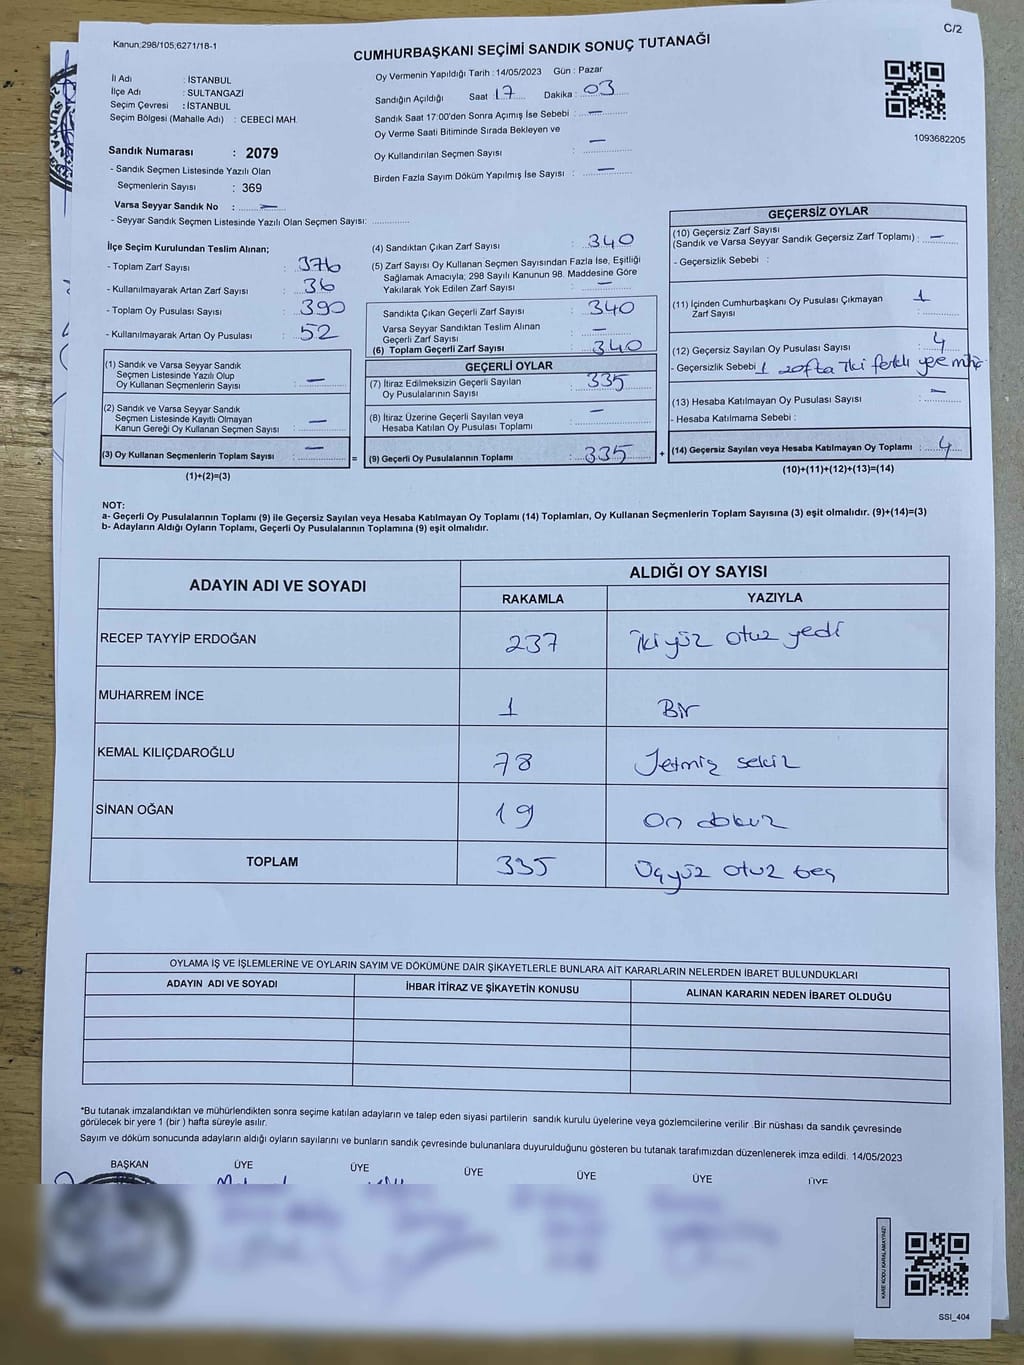 Kanun:298/105,6271/18-1
C/2
CUMHURBAŞKANI SEÇİMİ SANDIK SONUÇ TUTANAĞI
İl Adı : İSTANBUL
İlçe Adı : SULTANGAZİ
Seçim Çevresi : İSTANBUL
Seçim Bölgesi (Mahalle Adı) : CEBECİ MAH.
Sandık Numarası : 2079
- Sandık Seçmen Listesinde Yazılı Olan
Seçmenlerin Sayısı : 369
Varsa Seyyar Sandık No : —
- Seyyar Sandık Seçmen Listesinde Yazılı Olan Seçmen Sayısı:
Oy Vermenin Yapıldığı Tarih : 14/05/2023 Gün : Pazar
Sandığın Açıldığı Saat 17 Dakika : 03
Sandık Saat 17:00'den Sonra Açımış İse Sebebi : —
Oy Verme Saati Bitiminde Sırada Bekleyen ve
Oy Kullandırılan Seçmen Sayısı : —
Birden Fazla Sayım Döküm Yapılmış İse Sayısı : —
1093682205
İlçe Seçim Kurulundan Teslim Alınan;
- Toplam Zarf Sayısı : 376
- Kullanılmayarak Artan Zarf Sayısı : 36
- Toplam Oy Pusulası Sayısı : 390
- Kullanılmayarak Artan Oy Pusulası : 52
(1) Sandık ve Varsa Seyyar Sandık
Seçmen Listesinde Yazılı Olup
Oy Kullanan Seçmenlerin Sayısı : —
(2) Sandık ve Varsa Seyyar Sandık
Seçmen Listesinde Kayıtlı Olmayan
Kanun Gereği Oy Kullanan Seçmen Sayısı : —
(3) Oy Kullanan Seçmenlerin Toplam Sayısı : —
(1)+(2)=(3)
(4) Sandıktan Çıkan Zarf Sayısı : 340
(5) Zarf Sayısı Oy Kullanan Seçmen Sayısından Fazla İse, Eşitliği
Sağlamak Amacıyla; 298 Sayılı Kanunun 98. Maddesine Göre
Yakılarak Yok Edilen Zarf Sayısı : —
Sandıkta Çıkan Geçerli Zarf Sayısı : 340
Varsa Seyyar Sandıktan Teslim Alınan
Geçerli Zarf Sayısı : —
(6) Toplam Geçerli Zarf Sayısı : 340
GEÇERLİ OYLAR
(7) İtiraz Edilmeksizin Geçerli Sayılan
Oy Pusulasının Sayısı : 335
(8) İtiraz Üzerine Geçerli Sayılan veya
Hesaba Katılan Oy Pusulası Toplamı : —
= (9) Geçerli Oy Pusulalarının Toplamı : 335
GEÇERSİZ OYLAR
(10) Geçersiz Zarf Sayısı
(Sandık ve Varsa Seyyar Sandık Geçersiz Zarf Toplamı) : —
- Geçersizlik Sebebi :
(11) İçinden Cumhurbaşkanı Oy Pusulası Çıkmayan
Zarf Sayısı : 1
(12) Geçersiz Sayılan Oy Pusulası Sayısı : 4
- Geçersizlik Sebebi 1 zafta iki farklı yere
(13) Hesaba Katılmayan Oy Pusulası Sayısı : —
- Hesaba Katılmama Sebebi :
+ (14) Geçersiz Sayılan veya Hesaba Katılmayan Oy Toplamı : 4
(10)+(11)+(12)+(13)=(14)
NOT:
a- Geçerli Oy Pusulalarının Toplamı (9) ile Geçersiz Sayılan veya Hesaba Katılmayan Oy Toplamı (14) Toplamları, Oy Kullanan Seçmenlerin Toplam Sayısına (3) eşit olmalıdır. (9)+(14)=(3)
b- Adayların Aldığı Oyların Toplamı, Geçerli Oy Pusulalarının Toplamına (9) eşit olmalıdır.
ADAYIN ADI VE SOYADI
ALDIĞI OY SAYISI
RAKAMLA YAZIYLA
RECEP TAYYİP ERDOĞAN 237 iki yüz otuz yedi
MUHARREM İNCE 1 Bir
KEMAL KILIÇDAROĞLU 78 Jetmiş sekiz
SİNAN OĞAN 19 On dokuz
TOPLAM 335 Üçyüz otuz beş
OYLAMA İŞ VE İŞLEMLERİNE VE OYLARIN SAYIM VE DÖKÜMÜNE DAİR ŞİKAYETLERLE BUNLARA AİT KARARLARIN NELERDEN İBARET BULUNDUKLARI
ADAYIN ADI VE SOYADI İHBAR İTİRAZ VE ŞİKAYETİN KONUSU ALINAN KARARIN NEDEN İBARET OLDUĞU
*Bu tutanak imzalandıktan ve mühürlendikten sonra seçime katılan adayların ve talep eden siyasi partilerin sandık kurulu üyelerine veya gözlemcilerine verilir .Bir nüshası da sandık çevresinde
görülecek bir yere 1 (bir ) hafta süreyle asılır.
Sayım ve döküm sonucunda adayların aldığı oyların sayılarını ve bunların sandık çevresinde bulunanlara duyurulduğunu gösteren bu tutanak tarafımızdan düzenlenerek imza edildi. 14/05/2023
BAŞKAN ÜYE ÜYE ÜYE ÜYE ÜYE ÜYE
KARE KODU KARALAMAYINIZ!
SSI_404